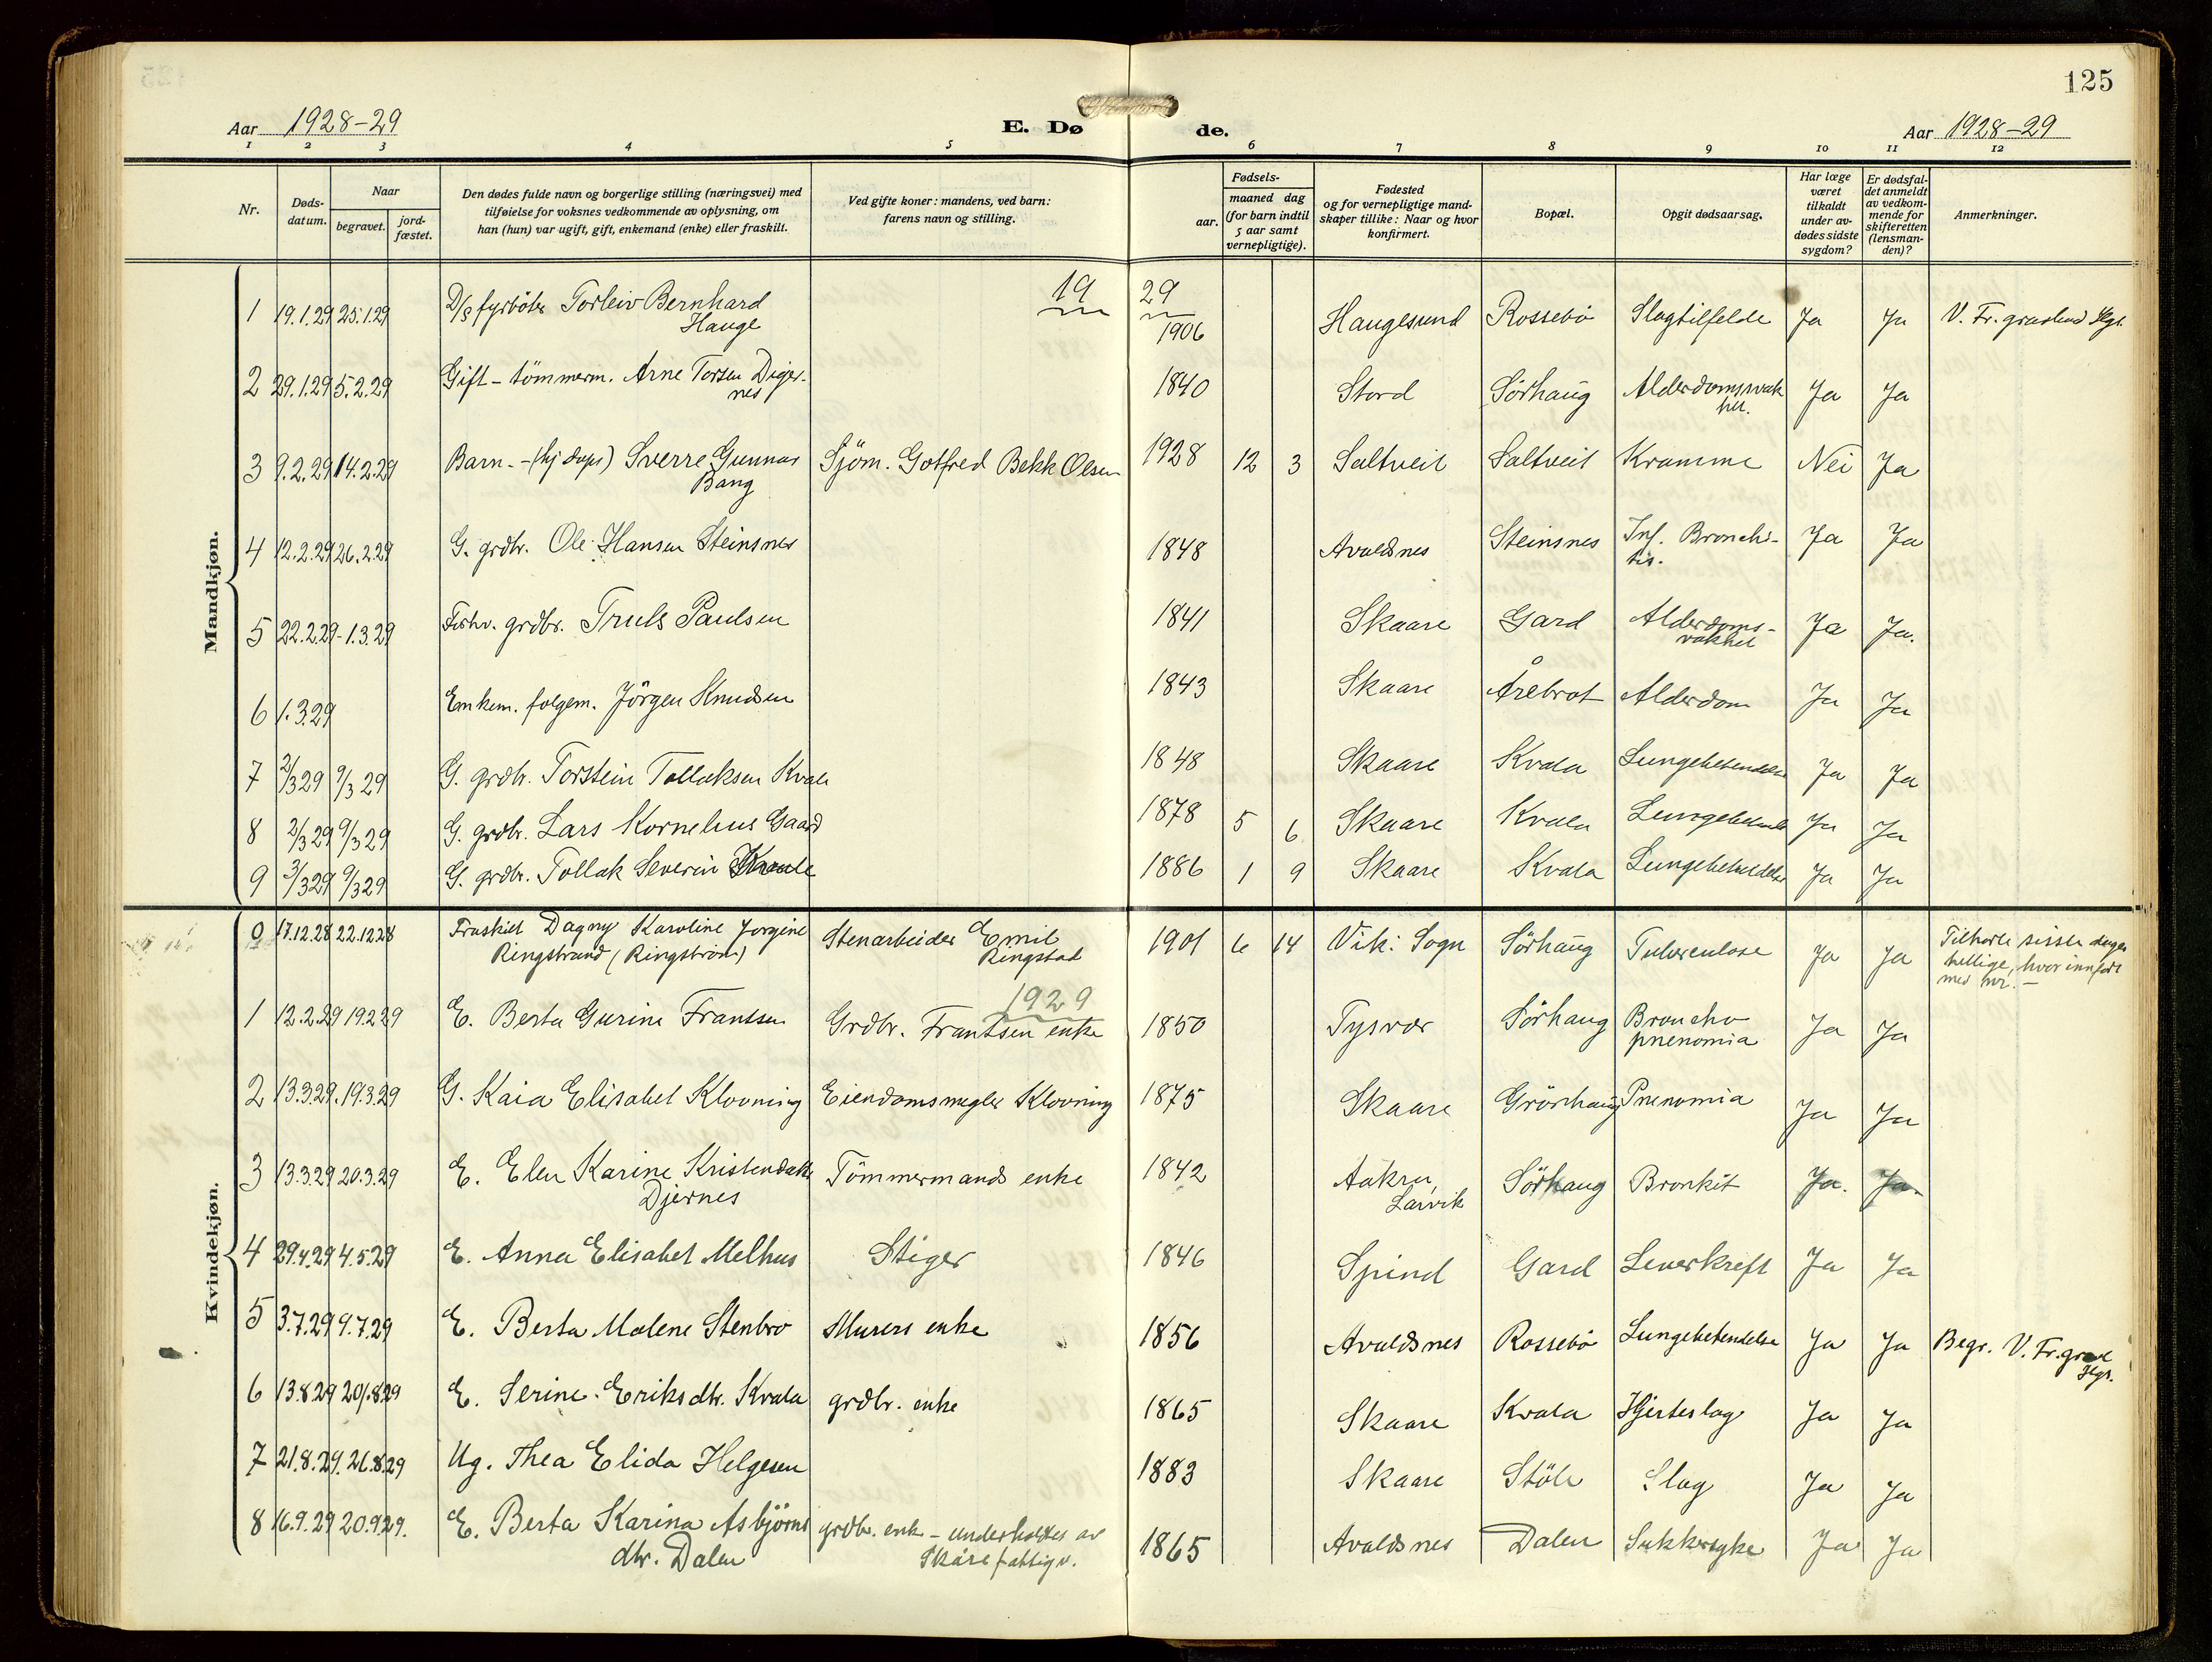 125
Aar 1928-29
E. Dø de.
Aar 1928-29
1 2 3 4 5 6 7 8 9 10 11 12
Nr.
Døds-
datum.
Naar
begravet.
jord-
fæstet.
Den dødes fulde navn og borgerlige stilling (næringsvei) med
tilføielse for voksnes vedkommende av oplysning, om
han (hun) var ugift, gift, enkemand (enke) eller fraskilt.
Ved gifte koner: mandens, ved barn:
farens navn og stilling.
Fødsels-
aar.
maaned dag
(for barn indtil
5 aar samt
vernepligtige).
Fødested
og for vernepligtige mand-
skaper tillike: Naar og hvor
konfirmert.
Bopæl.
Opgit dødsaarsag.
Har læge
været
tilkaldt
under av-
dødes sidste
sygdom?
Er dødsfal-
det anmeldt
av vedkom-
mende for
skifteretten
(lensman-
den)?
Anmerkninger.
Mandkjøn.
19 29
1 19.1.29 25.1.29 D/s fyrböter Torleiv Bernhard
Hauge 1906 Haugesund Rossebö Slagtilfelde Ja Ja V. Fr. gravlund Hgs.
2 29.1.29 5.2.29 Gift - tömmerm. Arne Torsen Diger-
nes 1840 Stord Sörhaug Alderdomssvak
het. Ja Ja
3 9.2.29 14.2.29 Barn. - (hj døpt) Sverre Gunnar
Bang Sjöm. Gotfred Bekk Olsen 1928 12 3 Saltveit Saltveit Kramme Nei Ja
4 12.2.29 26.2.29 G. grdbr. Ole Hansen Steinsnes 1848 Avaldsnes Steinsnes Inf. Bronchi-
tis. Ja Ja
5 22.2.29 - 1.3.29 Forhv. grdbr. Truls Paulsen 1841 Skaare Gard Alderdoms-
svakhet Ja Ja.
6 1.3.29 Enkem. folgem. Jörgen Knudsen 1843 Skaare Årebrot Alderdom Ja Ja
7 2/3 29 9/3 29 G. grdbr. Torstein Tollaksen Kvale 1848 Skaare Kvala Lungebetendelse Ja Ja
8 2/3 29 9/3 29 G. grdbr. Lars Kornelius Gaard 1878 5 6 Skaare Kvala Lungebetendelse Ja Ja
9 3/3 29 9/3 29 G. grdbr. Tollak Severin Kvale 1886 1 9 Skaare Kvala Lungebetendelse Ja Ja
Kvindekjøn.
0 17.12.28 22.12.28 Fraskilt Dagny Karoline Jorgine
Ringstrand (Ringström) Stenarbeider Emil
Ringstad 1901 6 14 Vik: Sogn Sörhaug Tuberculose Ja Ja Tilhørte sisste dages
hellige, hvor innført
med nr. -
1929
1 12.2.29 19.2.29 E. Berta Gurine Frantsen Grdbr. Frantsen enke 1850 Tysvær Sörhaug Broncho
pnenomia Ja Ja
2 13.3.29. 19.3.29 G. Kaia Elisabet Klovning Eiendomsmegler Klovning 1875 Skaare Grönhaug Pnenomia Ja Ja
3 13.3.29 20.3.29 E. Elen Karine Kristensdatter
Djernes Tömmermands enke 1842 Aakra,
Larvik Sörhaug Bronkit Ja. Ja.
4 29.4.29 4.5.29 E. Anna Elisabet Melhus Stiger 1846 Spind Gard Leverkreft Ja Ja
5 3.7.29 9.7.29 E. Berta Malene Stenbro Murers enke 1856 Avaldsnes Rossebö Lungebetendelse Ja Ja Begr. V. Fr. grav
Hgs.
6 13.8.29 20/.8.29 E. Serine Eriksdtr. Kvala grdbr. enke 1865 Skaare Kvala Hjerteslag Ja Ja
7 21.8.29. 26.8.29 Ug. Thea Elida Helgesen 1883 Skaare Stöle Slag Ja Ja
8 16.9.29 20.9.29. E. Berta Karina Asbjörns
dtr. Dalen grdbr. enke - underholdtes av
Skåre fattigv. 1865 Avaldsnes Dalen Sukkersyke Ja Ja